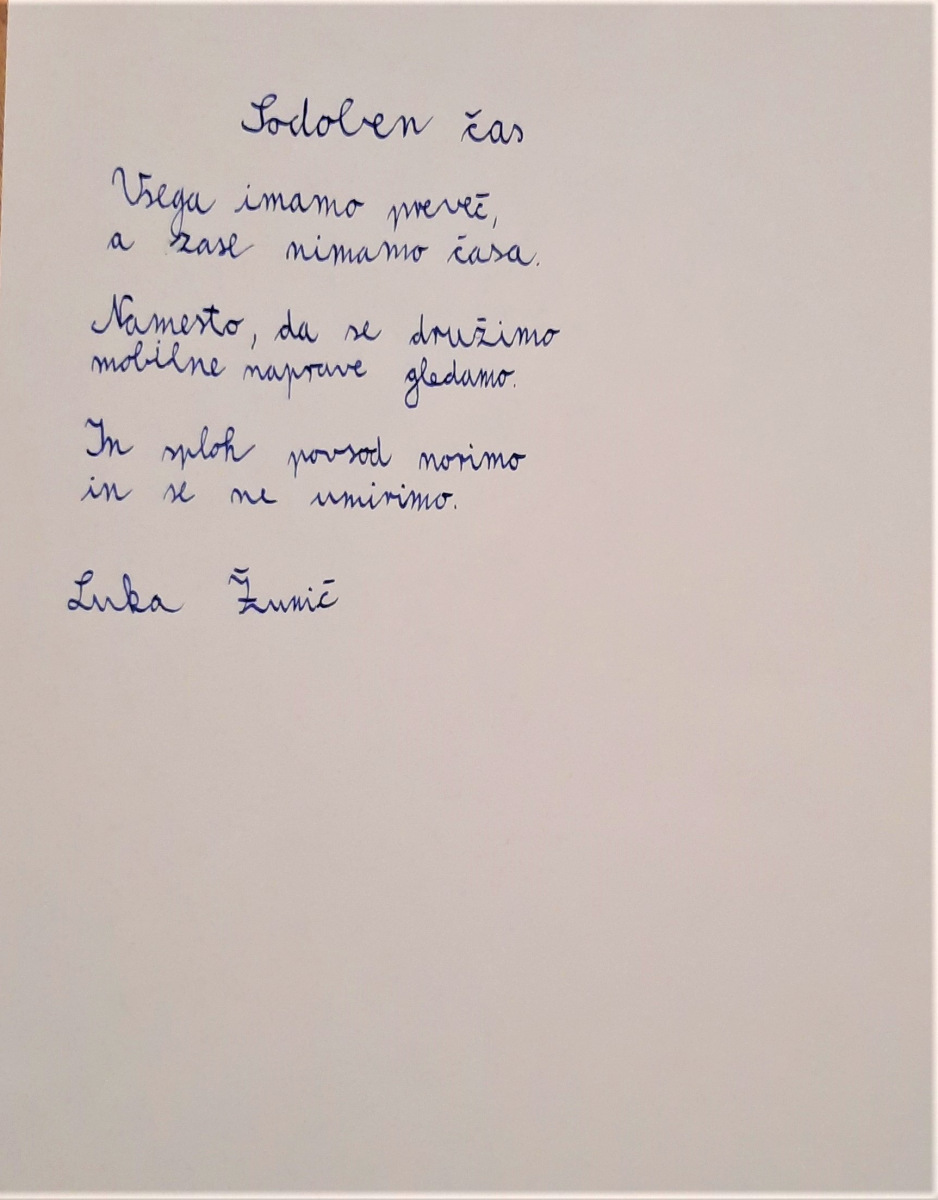 Sodoben čas
Vsega imamo preveč,
a zase nimamo časa.
Namesto, da se družimo
mobilne naprave gledamo.
In sploh povsod norimo
in se ne umirimo.
Luka Žunič